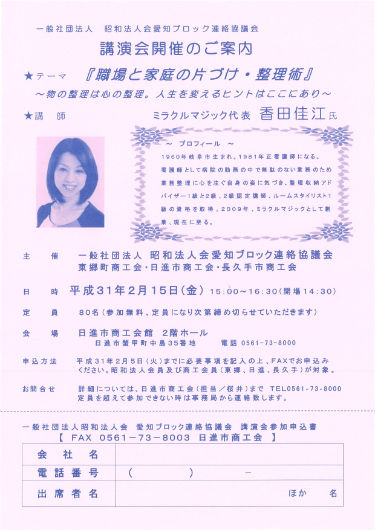 一般社団法人 昭和法人会愛知ブロック連絡協議会
講演会開催のご案内
★テーマ 『職場と家庭の片づけ・整理術』
～物の整理は心の整理。人生を変えるヒントはここにあり～
★講師 ミラクルマジック代表 香田佳江氏
～ プロフィール ～
1960年岐阜市生まれ。1981年正看護師になる。
看護師として病院の勤務の中で無駄のない業務のため
業務整理に心を注ぐ自身の姿に気づき、整理収納アド
バイザー1級と2級、2級認定講師、ルームスタイリスト1
級の資格を取得。2009年、ミラクルマジックとして創
業、現在に至る。
主催 一般社団法人 昭和法人会愛知ブロック連絡協議会
東郷町商工会・日進市商工会・長久手市商工会
日時 平成31年2月15日(金) 15:00～16:30(開場14:30)
定員 80名(参加無料、定員になり次第締め切らせていただきます)
会場 日進市商工会館 2階ホール
日進市蟹甲町中島35番地 電話 0561-73-8000
申込方法 平成31年2月5日(火)までに必要事項を記入の上、FAXでお申込み
ください。昭和法人会会員及び商工会会員(東郷、日進、長久手)が対象。
お問合せ 詳細については、日進市商工会(担当/桜井)まで TEL0561-73-8000
定員を超えて参加できない時は事務局から連絡致します。
一般社団法人昭和法人会 愛知ブロック連絡協議会 講演会参加申込書
【 FAX 0561-73-8003 日進市商工会 】
会社名
電話番号 ( ) -
出席者名 ほか 名